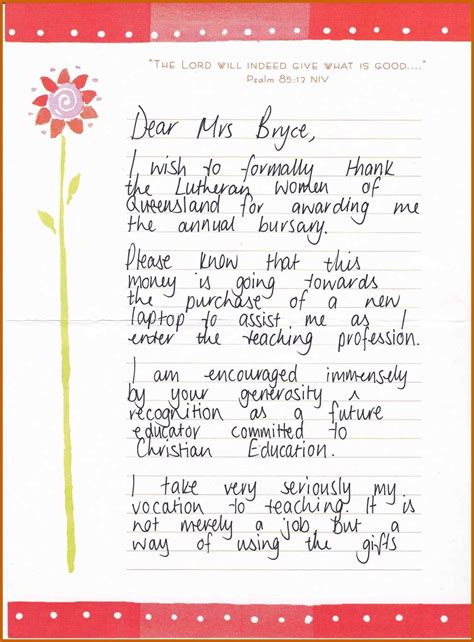 "THE LORD WILL INDEED GIVE WHAT IS GOOD...."
Psalm 85:12 NIV
Dear Mrs Bryce,
I wish to formally thank
the Lutheran Women of
Queensland for awarding me
the annual bursary.
Please know that this
money is going towards
the purchase of a new
laptop to assist me as I
enter the teaching profession.
I am encouraged immensely
by your generosity ^
recognition as a future
educator committed to
Christian Education.
I take very seriously my
vocation to teaching. It is
not merely a job, but a
way of using the gifts